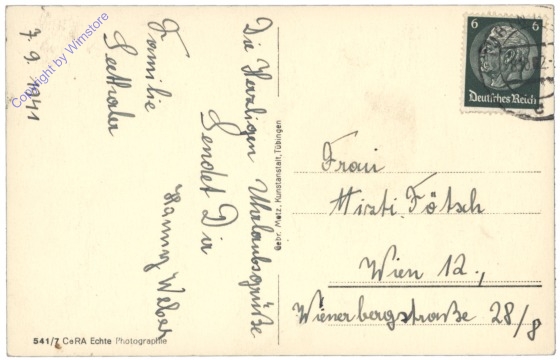 7. 9. 1941
Die Herzligen Uhrlaubsgrüße
Sendet Dir
Hanny Weber
Familie
Copyright by Wimstore
Gebr. Metz, Kunstanstalt, Tübingen
541/7 CeRA Echte Photographie
6 6
Deutsches Reich
Frau
Mizti Fötsch
Wien 12.,
Wienerbergstraße 28/8